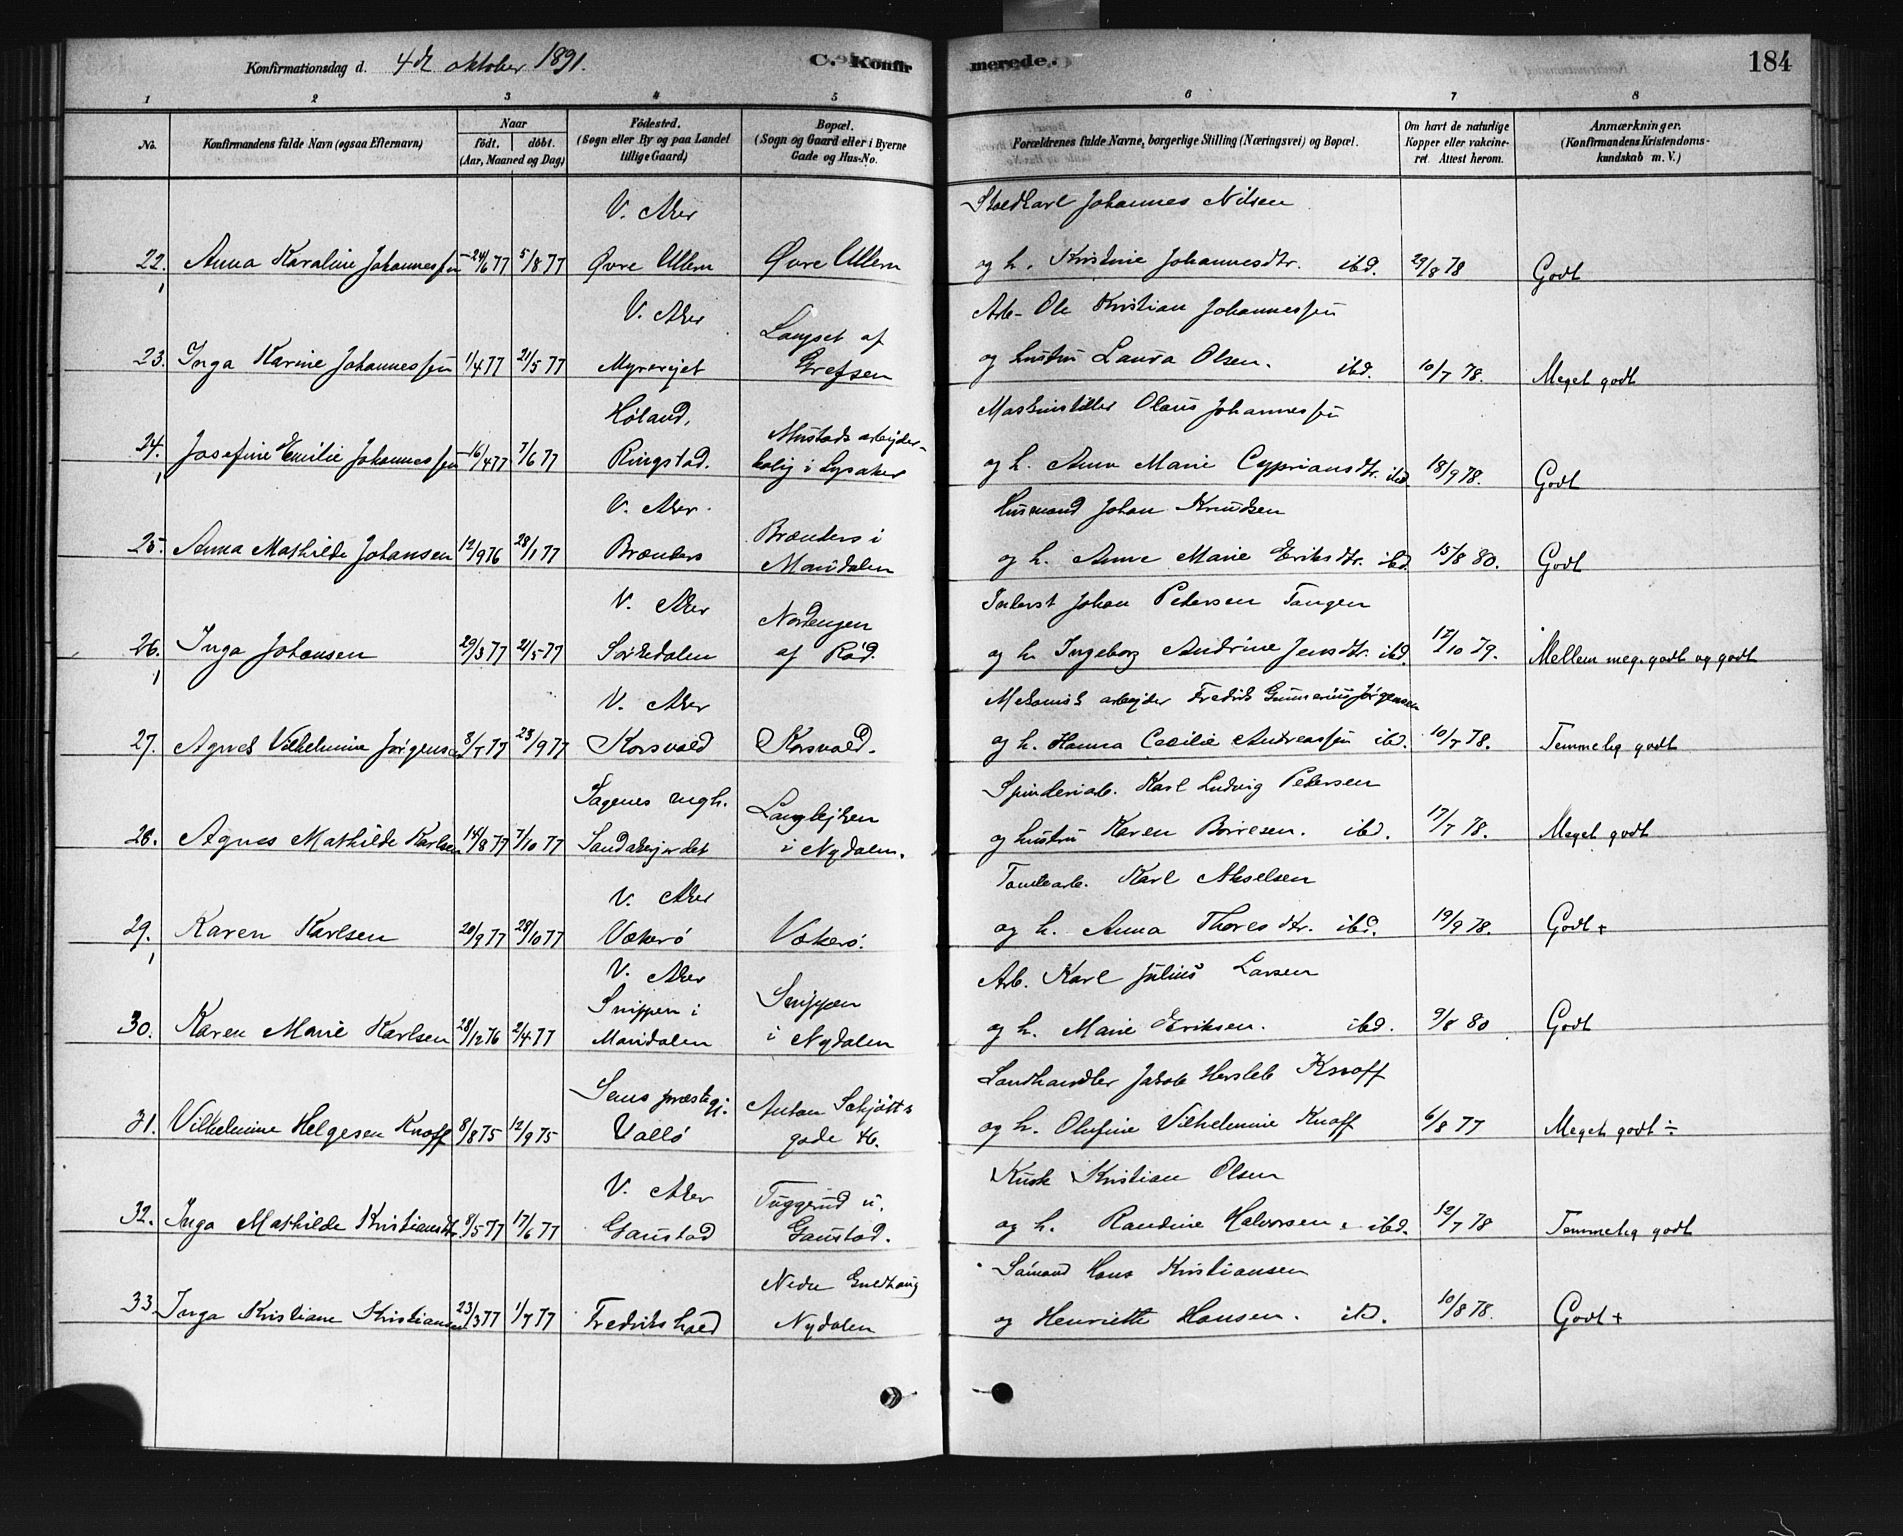 Konfirmationsdag d. 4de oktober 1891.
C. Konfirmerede.
184
1 2 3 4 5 6 7 8
No.
Konfirmandens fulde Navn (ogsaa Efternavn)
Naar
født. døbt.
(Aar, Maaned og Dag)
Fødested.
(Sogn eller By og paa Landet
tillige Gaard)
Bopæl.
(Sogn og Gaard eller i Byerne
Gade og Hus-No.
Forældrenes fulde Navne, borgerlige Stilling (Næringsvei) og Bopæl.
Om havt de naturlige
Kopper eller vakcine-
ret. Attest herom.
Anmærkninger.
(Konfirmandens Kristendoms-
kundskab m. V.)
V. Aker Johannes Nilsen
22. Anna Karoline Johannessen 24/6 77 5/8 77 Øvre Ullern Øvre Ullern og h. Kristine Johannesdtr. ibd. 29/8 78 Godt
V. Aker Langset af Arb. Ole Kristian Johannessen
23. Inga Karine Johannessen 1/4 77 21/5 77 Myrerejet Grefsen og hustru Laura Olsen. ibd. 10/7 78. Meget godt
Høland, Mustads arbejder- Maskinstiller Olaus Johannessen
24. Josefine Emilie Johannessen 16/4 77 7/6 77 Ringstad. bolig i Lysaker og h. Anne Marie Cypriansdtr. ibd. 18/9 78. Godt
V. Aker. Brænders i Husmand Johan Knudsen
25. Anna Mathilde Johansen 12/9 76 28/1 77 Brænders Maridalen og h. Anne Marie Eriksdtr. ibd. 15/8 80. Godt
V. Aker Nordengen Inderst Johan Petersen Tangen
26. Inga Johansen 29/3 77 21/5 77 Sørkedalen af Rød. og h. Ingeborg Andrine Jensdtr. ibd. 15/10 79. Mellem meg. godt og godt
V. Aker Mekanisk arbejder Fredrik Gunnerius Jørgensen
27. Agnes Vilhelmine Jørgensen 8/7 77 23/9 77 Korsvold Korsvold. og h. Hanna Cecilie Andreassen ibd. 10/7 78. Temmelig godt
Sagenes mgh. Langlejken Spinderiarb. Karl Ludvig Petersen
28. Agnes Mathilde Karlsen 14/8 77 7/10 77 Sandakerjordet i Nydalen. og hustru Karen Børresen. ibd. 17/7 78. Meget godt
V. Aker Tomtearb. Karl Akselsen
29. Karen Karlsen 20/9 77 28/10 77 Vækerø Vækerø. og h. Anna Thoresdtr. ibd. 19/9 78. Godt +
V. Aker Arb. Karl Julius Larsen
Snippen i Snippen
30. Karen Marie Karlsen 28/12 76 2/4 77 Maridalen i Nydalen og h. Marie Eriksen. ibd. 9/8 80 Godt
Sems præstegj: Anton Schjøtts Landhandler Jakob Hersleb Knoff
31. Vilhelmine Helgesen Knoff 8/8 75 12/9 75 Vallø gade 46. og h. Olufine Vilhelmine Knoff 6/8 77 Meget godt ÷
V. Aker Tuggerud u. Kusk Kristian Olsen
32. Inga Mathilde Kristiansdtr. 8/5 77 17/6 77 Gaustad Gaustad. og h. Randine Halvorsen. ibd. 12/7 78 Temmelig godt
Nedre Guldhaug Sømand Hans Kristiansen
33. Inga Kristiane Kristiansen 23/3 77 1/7 77 Fredrikshald Nydalen og Henriette Hansen. ibd. 10/8 78. Godt +